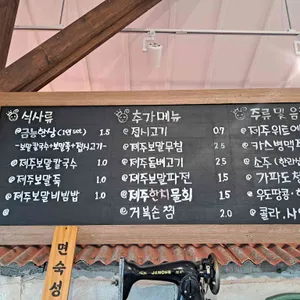 식사류
@금능한상(1인 set) 1.5
-보말칼국수+보말죽+접시고기-
@제주보말칼국수 1.0
@제주보말죽 1.0
@제주보말비빔밥 1.0
@
추가메뉴
@접시고기 0.7
@제주보말무침 2.5
@제주돔베고기 2.5
@제주보말파전 1.5
@제주한치물회 1.5
@거북손찜 2.0
주류 및 음
@제주위트
@카스병맥
@소주(한라산
@가파도청
@우도땅콩
@콜라.사
면숙성
JANOME